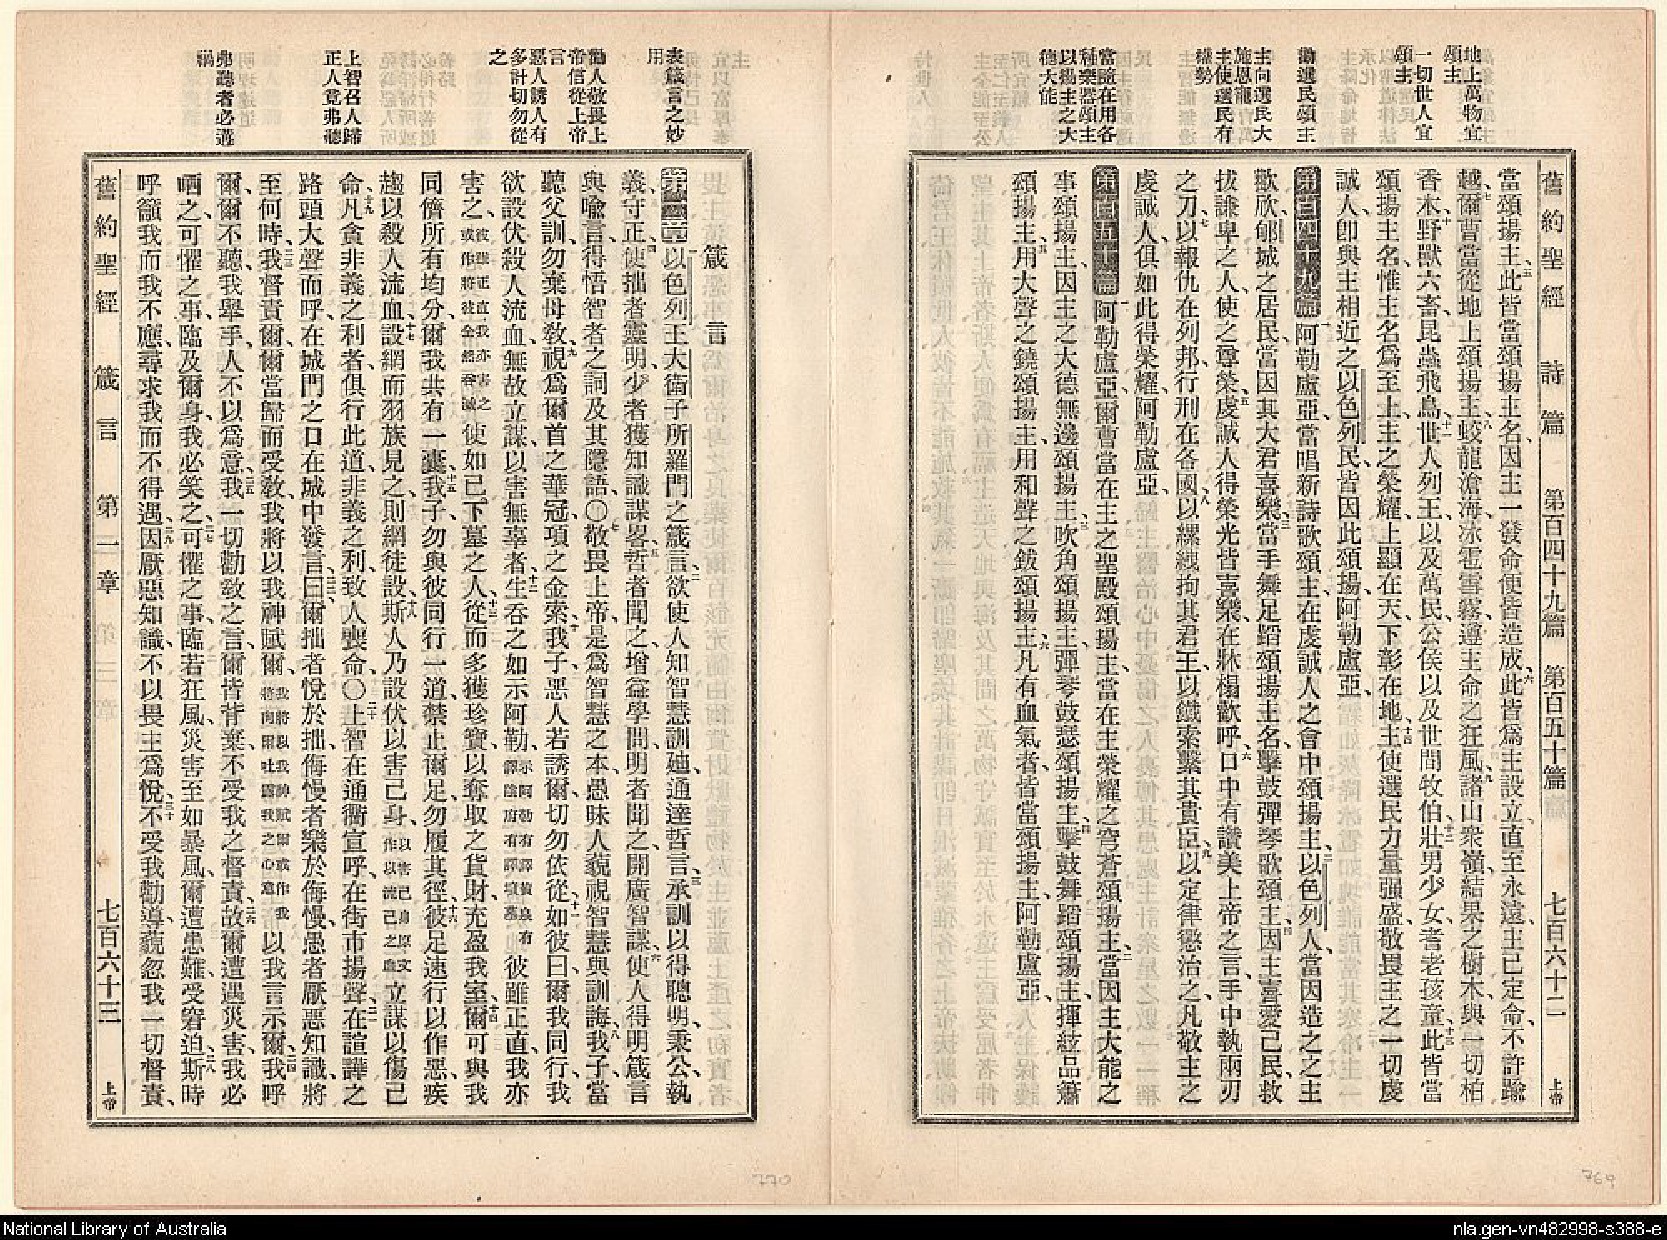 地上萬物宜
頌主
一切世人宜
頌主
勸選民頌主
主向選民大
施恩寵
主使選民有
權勢
當隨在用各
種樂器頌主
以揚主之大
德大能
舊約聖經 詩篇 第百四十九篇 第百五十篇 七百六十二 上帝
當頌揚主、五此皆當頌揚主名、因主一發命便皆造成、六此皆爲主設立、直至永遠、主已定命、不許踰
越、七爾曹當從地上頌揚主、蛟龍滄海、八火雹雪霧、遵主命之狂風、九諸山衆嶺、結果之樹木、與一切柏
香木、十野獸六畜、昆蟲飛鳥、十一世人列王、以及萬民、公侯以及世間牧伯、十二壯男少女、耆老孩童、十三此皆當
頌揚主名、惟主名爲至上、主之榮耀、上顯在天、下彰在地、十四主使選民力量强盛、敬畏主之一切虔
誠人、卽與主相近之以色列民、皆因此頌揚、阿勒盧亞、
第百四十九篇 一阿勒盧亞、當唱新詩歌頌主、在虔誠人之會中頌揚主、二以色列人當因造之之主
歡欣、郇城之居民、當因其大君喜樂、三當手舞足蹈頌揚主名、擊鼓彈琴歌頌主、四因主喜愛己民、救
拔謙卑之人、使之尊榮、五虔誠人得榮光皆喜樂、在牀榻歡呼、六口中有讚美上帝之言、手中執兩刃
之刀、七以報仇在列邦、行刑在各國、八以縲絏拘其君王、以鐵索繫其貴臣、九以定律懲治之、凡敬主之
虔誠人、俱如此得榮耀、阿勒盧亞、
第百五十篇 一阿勒盧亞、爾曹當在主之聖殿頌揚主、當在主榮耀之穹蒼頌揚主、二當因主大能之
事頌揚主、因主之大德無邊頌揚主、三吹角頌揚主、彈琴鼓瑟頌揚主、四擊鼓舞蹈頌揚主、揮絃品簫
頌揚主、五用大聲之鐃頌揚主、用和聲之鈸頌揚主、六凡有血氣者、皆當頌揚主、阿勒盧亞、
表箴言之妙
用
勸人敬畏上
帝信從上帝
言
惡人誘人有
多計切勿從
之
上智召人歸
正人竟弗聽
弗聽者必遘
禍
箴言
第一章 一以色列王大衛子所羅門之箴言、二欲使人知智慧訓迪、通達哲言、三承訓以得聰明、秉公執
義守正、四使拙者靈明、少者獲知識謀畧、五哲者聞之、增益學問、明者聞之、開廣智謀、六使人得明箴言
與喻言、得悟智者之詞、及其隱語、〇七敬畏上帝、是爲智慧之本、愚昧人藐視智慧與訓誨、八我子當
聽父訓、勿棄母敎、九視爲爾首之華冠、項之金索、十我子、惡人若誘爾、切勿依從、十一如彼曰、爾我同行、我
欲設伏殺人流血、無故立謀以害無辜者、十二生吞之如示阿勒、示阿勒有譯黃泉有譯陰府有譯墳墓他彼雖正直、我亦
害之、彼雖正直我亦害之或作將彼全然吞滅使如已下墓之人、十三從而多獲珍寶、以奪取之貨財、充盈我室、十四爾可與我
同儕、所有均分、爾我共有一囊、十五我子、勿與彼同行一道、禁止爾足、勿履其徑、十六彼足速行以作惡、疾
趨以殺人流血、十七設網而羽族見之、則網徒設、十八斯人乃設伏以害己身、以害己身原文作以流己之血立謀以傷己
命、十九凡貪非義之利者、俱行此道、非義之利、致人喪命、〇二十上智在通衢宣呼、在街市揚聲、二一在諠譁之
路頭大聲而呼、在城門之口、在城中發言、二二曰、爾拙者悅於拙、侮慢者樂於侮慢、愚者厭惡知識、將
至何時、二三我督責爾、爾當歸而受敎、我將以我神賦爾、我將以我神賦爾或作我將向爾吐露我之心意以我言示爾、二四我呼
爾、爾不聽、我舉手、人不以爲意、二五我一切勸敎之言、爾皆背棄、不受我之督責、二六故爾遭遇災害、我必
哂之、可懼之事、臨及爾身、我必笑之、二七可懼之事、臨若狂風、災害至如暴風、爾遭患難、受窘迫、二八斯時
呼籲我、而我不應、尋求我、而不得遇、二九因厭惡知識、不以畏主爲悅、三十不受我勸導、藐忽我一切督責、
舊約聖經 箴言 第一章 七百六十三 上帝
770
769
National Library of Australia
nla.gen-vn482998-s388-e